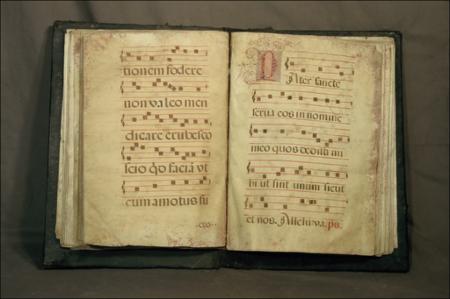 tionem fodere
non valeo men
dicare erubesco
scio qō faciā vt
cum amotus fu
Pater sancte
serva eos in nomine
meo quos dedisti mi
hi ut sint unum sicut
et nos. Alleluya. ps.